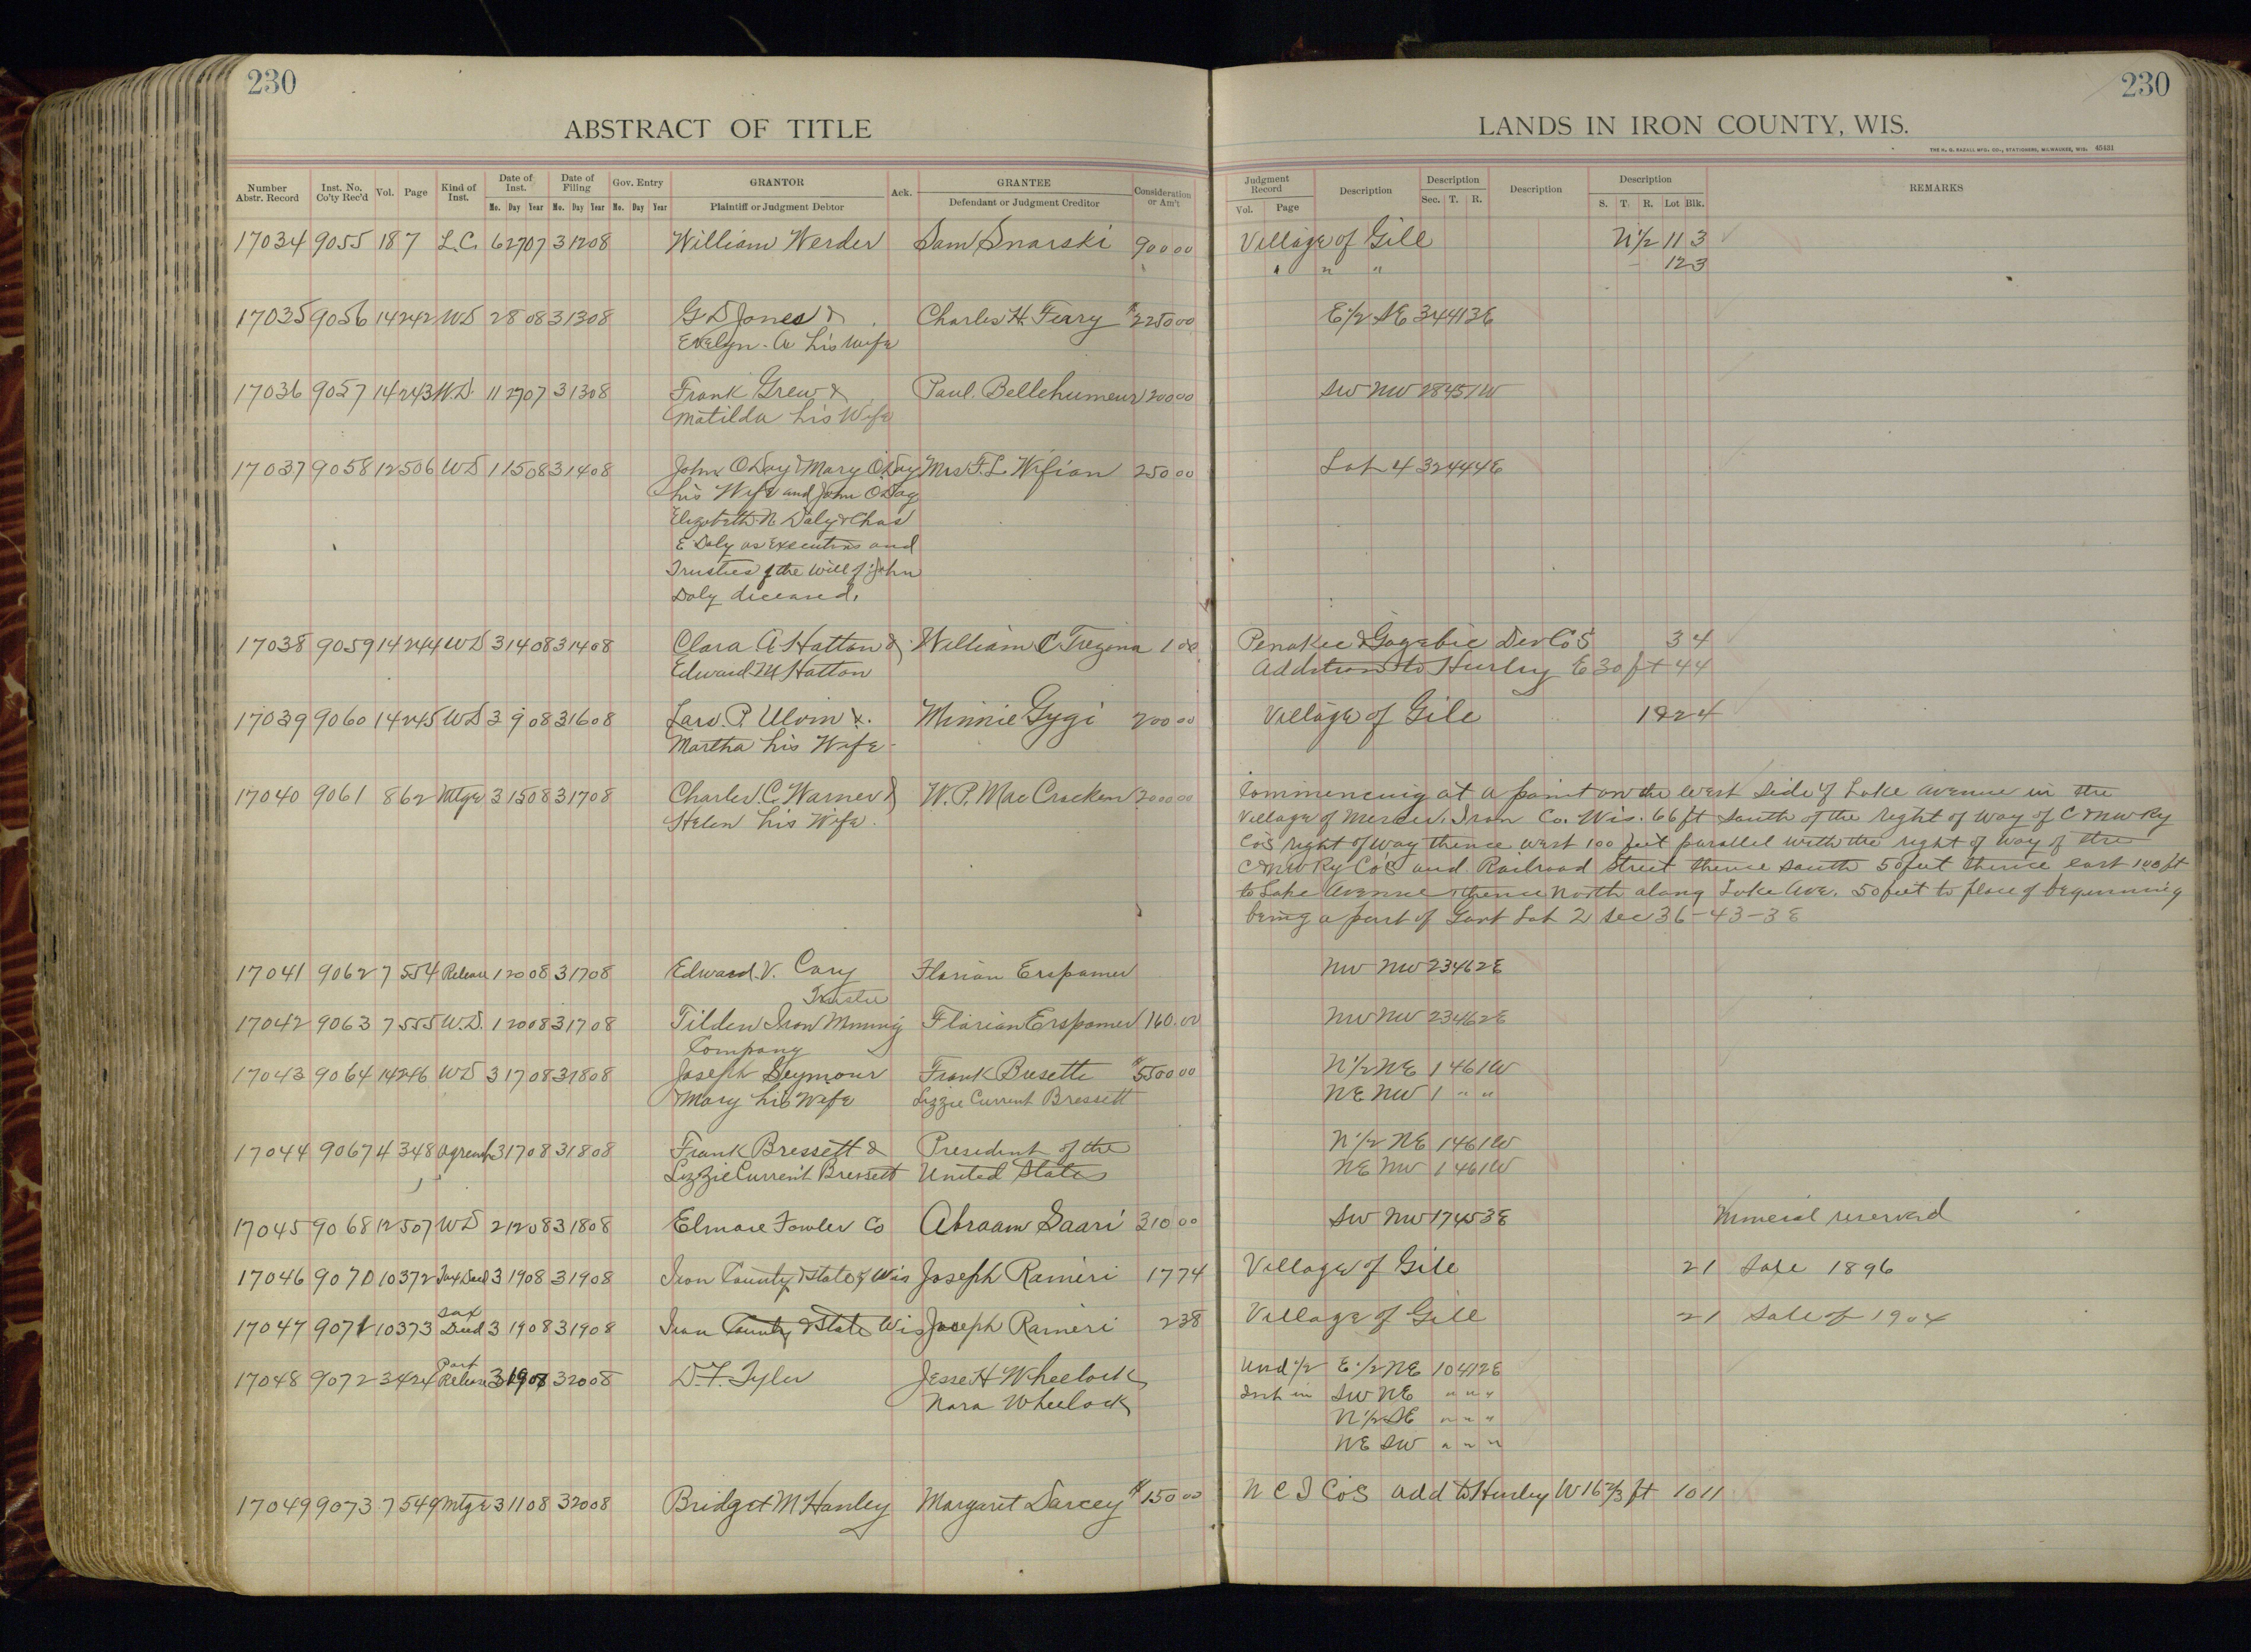 230
230
ABSTRACT OF TITLE
LANDS IN IRON COUNTY, WIS.
THE H. G. RAZALL MFG. CO., STATIONERS, MILWAUKEE, WIS. 45431
Number Abstr. Record Inst. No. Co'ty Rec'd Vol. Page Kind of Inst. Date of Inst. Date of Filing Gov. Entry GRANTOR Ack. GRANTEE Consideration or Am't
Mo. Day Year Mo. Day Year Mo. Day Year Plaintiff or Judgment Debtor Defendant or Judgment Creditor
Judgment Record Description Description Description Description REMARKS
Vol. Page Sec. T. R. S. T. R. Lot Blk.
17034 9055 18 7 L.C. 6 27 07 3 12 08 William Werder Sam Snarski 900 00 Village of Gile N 1/2 11 3
" " " 12 3
17035 9056 14 242 WD 2 8 08 3 13 08 G D Jones & Charles H. Ferry $2250 00 E 1/2 SE 34 41 3E
Evelyn A his wife
17036 9057 14 243 W.D. 11 27 07 3 13 08 Frank Grew & Paul Bellehumeur 200 00 SW NW 28 45 1W
Matilda his Wife
17037 9058 12 506 WD 1 15 08 3 14 08 John O'Day & Mary O'Day Mrs F. L. 250 00 Lot 4 32 44 4E
his Wife and John O'Day
Elizabeth N Daly & Chas
E Daly as Executors and
Trustees of the Will of John
Daly deceased.
17038 9059 14 244 WD 3 14 08 3 14 08 Clara A Hatton & William C Trezona 1 00 Penokee & Gogebic Dev Co's 3 4
Edward M Hatton Addition to Hurley E 30 ft 4 4
17039 9060 14 245 WD 3 9 08 3 16 08 Lars P. Ulvin &. Minnie Gygi 200 00 Village of Gile 19 24
Martha his Wife
17040 9061 8 62 Mtge 3 15 08 3 17 08 Charles C. Warner & W. P. Mac Cracken 2000 00
Helen his Wife.
Commencing at a point on the west side of Lake Avenue in the
Village of Mercer, Iron Co. Wis. 66 ft south of the right of way of C & NW Ry
Co's right of way thence west 100 feet parallel with the right of way of the
C & NW Ry Co's and Railroad Street thence south 50 feet thence east 100 ft
to Lake Avenue thence North along Lake Ave. 50 feet to place of beginning
being a part of Govt Lot 2 sec 36-43-3E
17041 9062 7 554 Release 1 20 08 3 17 08 Edward V. Cary Florian Erspamer NW NW 23 46 2E
Trustee
17042 9063 7 555 W.D. 1 20 08 3 17 08 Tilden Iron Mining Florian Erspamer 160.00 NW NW 23 46 2E
Company
17043 9064 14 246 WD 3 17 08 3 18 08 Joseph Seymour Frank Bresette $5500 00 N 1/2 NE 1 46 1W
Mary his Wife Lizzie Current Bressett NE NW 1 " "
17044 9067 4 348 Agremt 3 17 08 3 18 08 Frank Bressett & President of the N 1/2 NE 1 46 1W
Lizzie Current Bressett United States NE NW 1 46 1W
17045 9068 12 507 WD 2 12 08 3 18 08 Elmore Fowler Co Abraam Saari 310 00 SW NW 17 45 3E Mineral reserved
17046 9070 10 372 Tax Deed 3 19 08 3 19 08 Iron County & State of Wis Joseph Ramieri 17 74 Village of Gile 21 Sale 1896
17047 9071 10 373 Tax Deed 3 19 08 3 19 08 Iron County & State Wis Joseph Ramieri 2 38 Village of Gile 21 Sale of 1904
17048 9072 3 424 Part Release 3 19 07 3 20 08 D. F. Tyler Jesse H Wheelock Und 1/2 E 1/2 NE 10 41 2E
Nora Wheelock Int in SW NE " " "
N 1/2 SE " " "
NE SW " " "
17049 9073 7 549 Mtge 3 11 08 3 20 08 Bridget M Hanley Margaret Darcey $150 00 N C I Co's add to Hurley W 16 2/3 ft 10 11